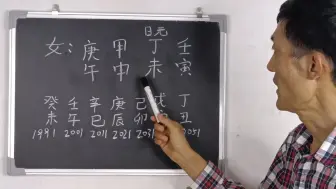 日元
女: 庚 甲 丁 壬
午 申 未 寅
癸 壬 辛 庚 己 戊 丁
未 午 巳 辰 卯 丑
1991 2001 2011 2021 2031